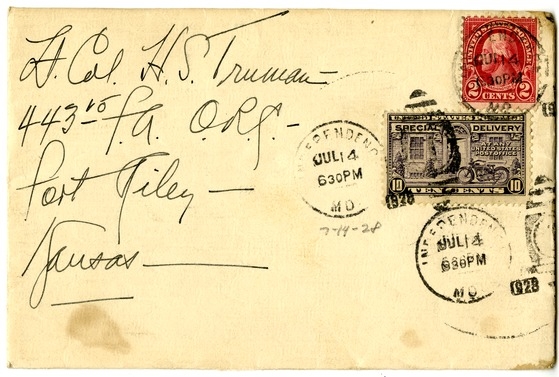 Lt. Col. H. S. Truman—
443rd F.A. O.R.C.—
Fort Riley—
Kansas—
UNITED STATES POSTAGE
2 CENTS 2
JUL 14
6 30 PM
MO
U.S. POSTAGE
SPECIAL DELIVERY
AT ANY
UNITED STATES
POST OFFICE
10 TEN CENTS 10
INDEPENDENCE
JUL 14
6 30 PM
MO
1928
7-14-28
INDEPENDENCE
JUL 14
6 30 PM
MO
1928